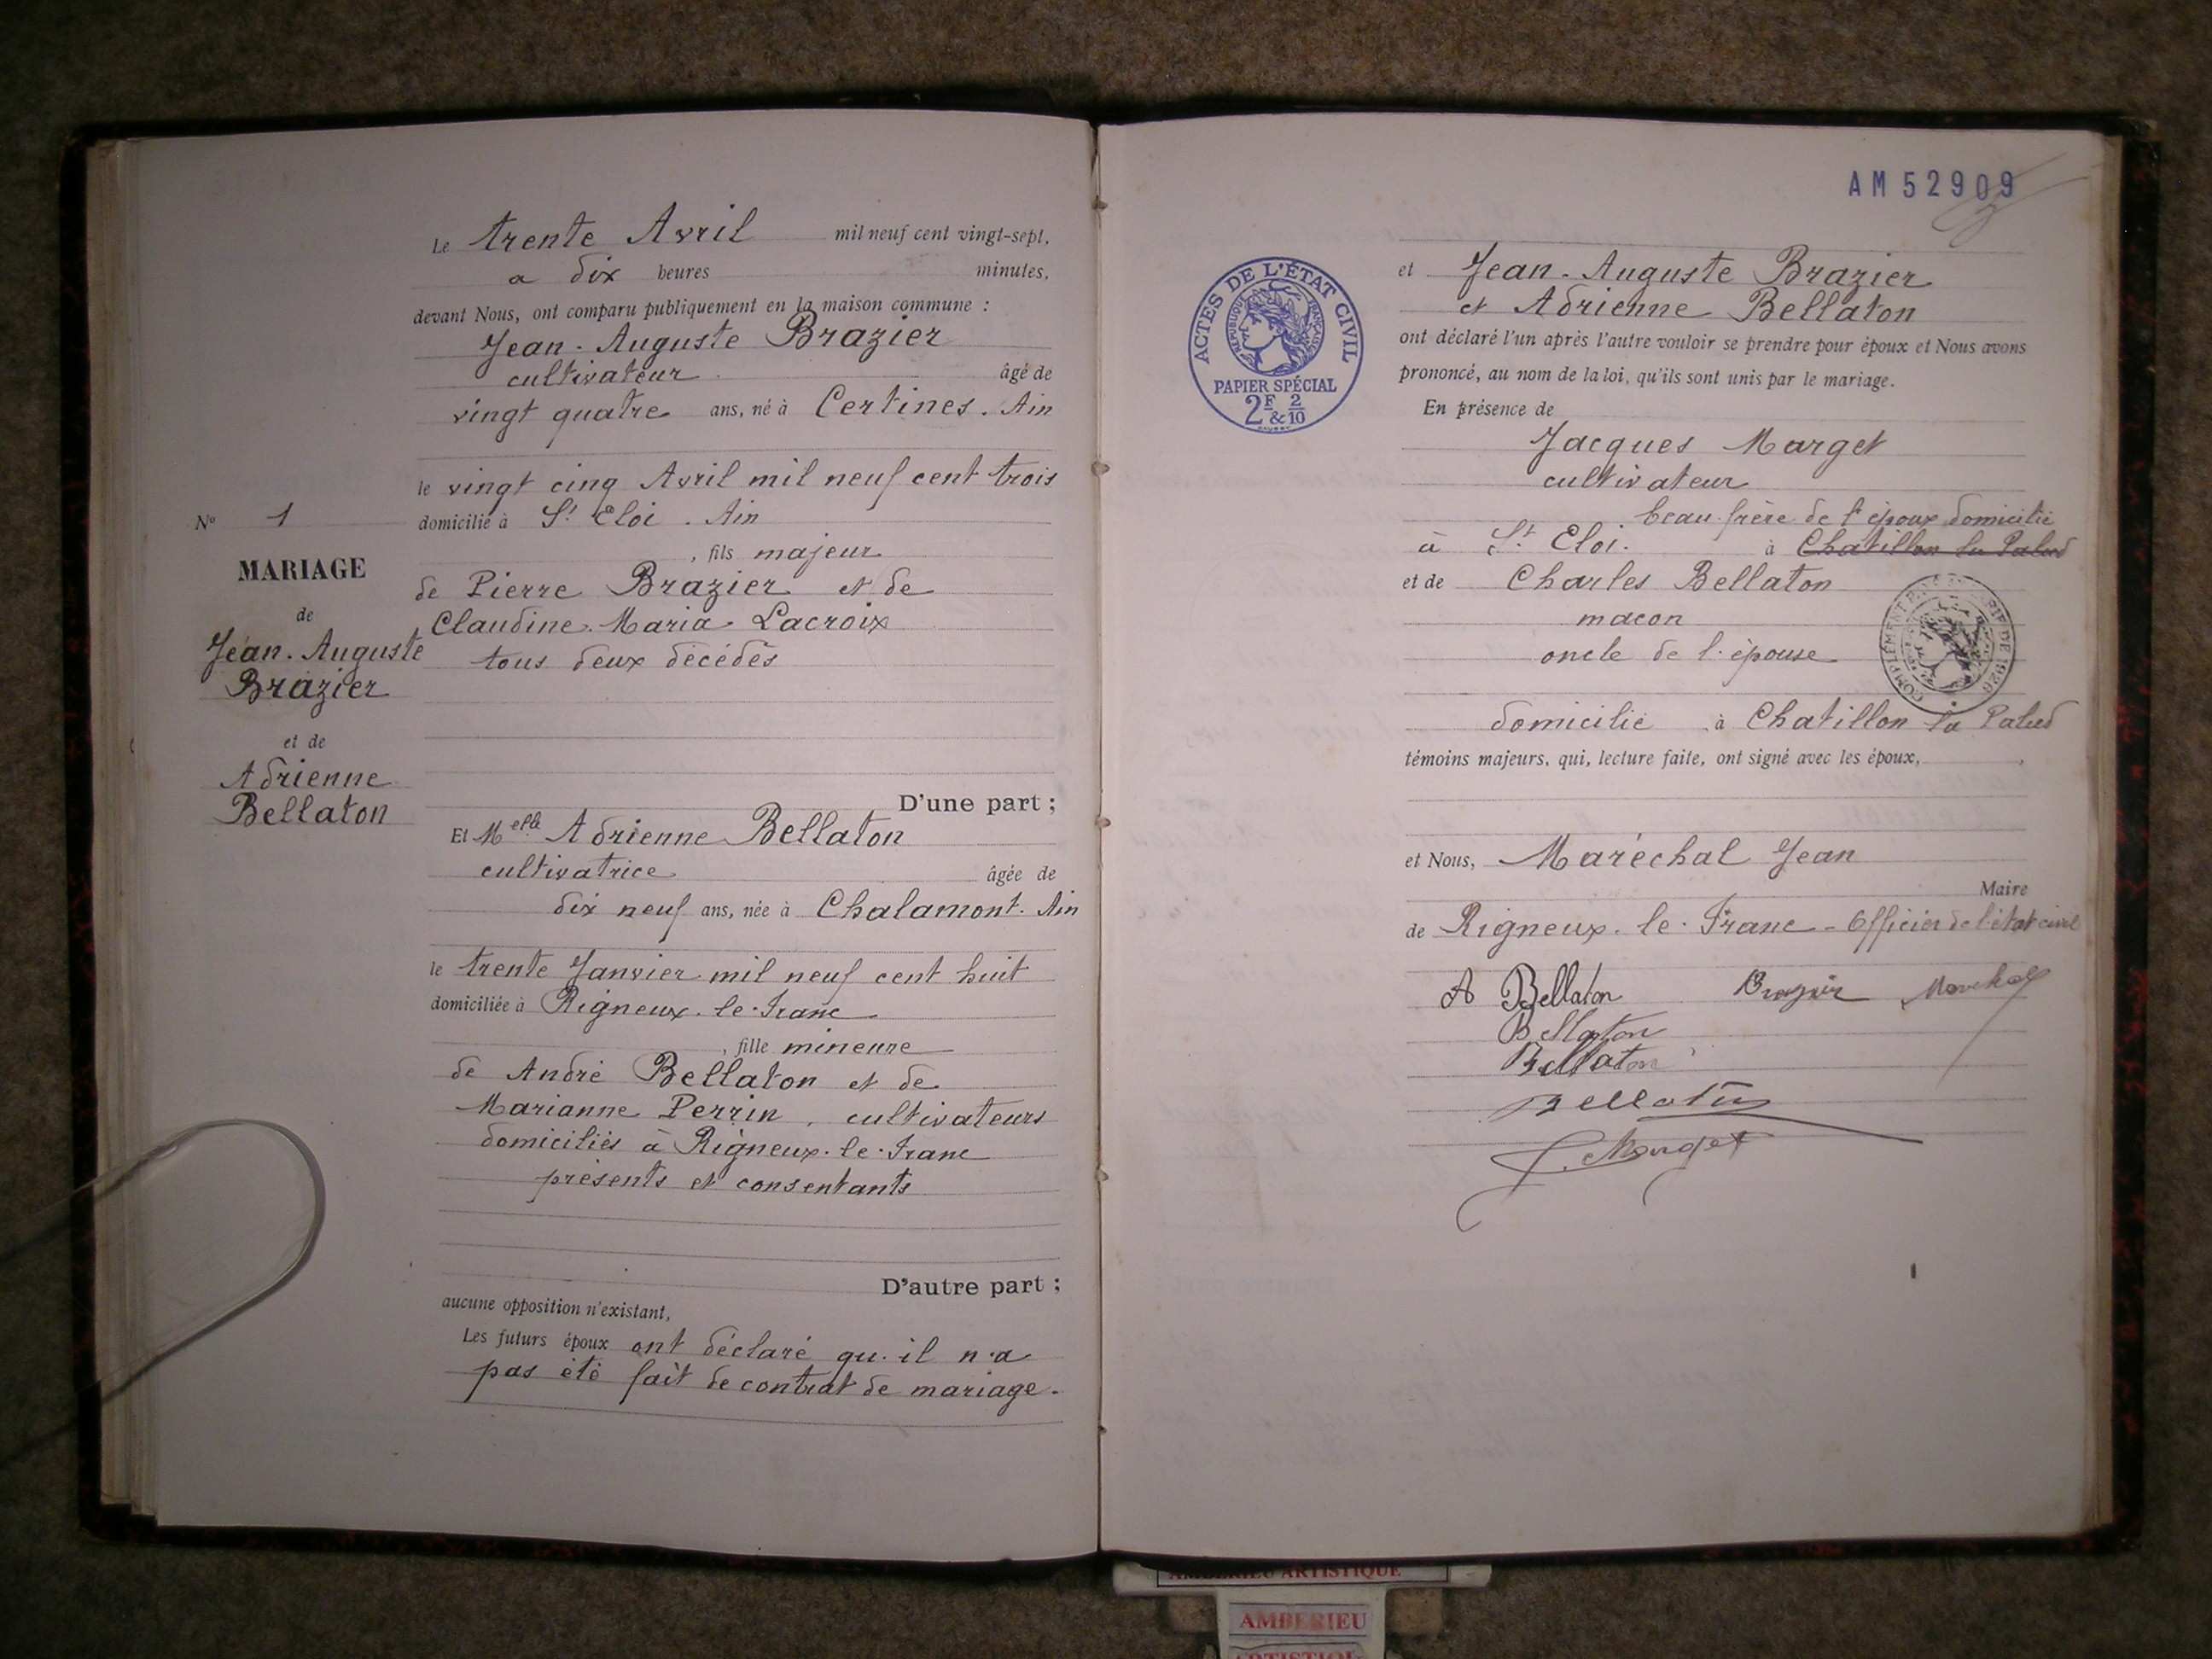 Le trente Avril mil neuf cent vingt-sept,
a dix heures minutes,
devant Nous, ont comparu publiquement en la maison commune :
Jean-Auguste Brazier
cultivateur âgé de
vingt quatre ans, né à Certines. Ain
le vingt cinq Avril mil neuf cent trois
domicilié à St Eloi. Ain
, fils majeur
de Pierre Brazier et de
Claudine-Maria Lacroix
tous deux décédés
No 1
MARIAGE
de
Jean-Auguste
Brazier
et de
Adrienne
Bellaton
D'une part ;
Et Melle Adrienne Bellaton
cultivatrice âgée de
dix neuf ans, née à Chalamont. Ain
le trente Janvier mil neuf cent huit
domiciliée à Rigneux-le-Franc
, fille mineure
de André Bellaton et de
Marianne Perrin, cultivateurs
domiciliés à Rigneux-le-Franc
présents et consentants
D'autre part ;
aucune opposition n'existant,
Les futurs époux ont déclaré qu'il n'a
pas été fait de contrat de mariage.
AM52909
ACTES DE L'ÉTAT CIVIL
RÉPUBLIQUE FRANÇAISE
PAPIER SPÉCIAL
2F & 2/10
et Jean-Auguste Brazier
et Adrienne Bellaton
ont déclaré l'un après l'autre vouloir se prendre pour époux et Nous avons
prononcé, au nom de la loi, qu'ils sont unis par le mariage.
En présence de
Jacques Marget
cultivateur
beau-frère de l'époux domicilié
à St Eloi. à Chatillon la Palud
et de Charles Bellaton
macon
oncle de l'épouse
domicilié à Chatillon la Palud
témoins majeurs, qui, lecture faite, ont signé avec les époux,
et Nous, Maréchal Jean
Maire
de Rigneux-le-Franc - Officier de l'état civil
A Bellaton Brazier Marechal
Bellaton
Bellaton
Bellaton
J. Marget
AMBERIEU ARTISTIQUE
AMBERIEU
ARTISTIQUE